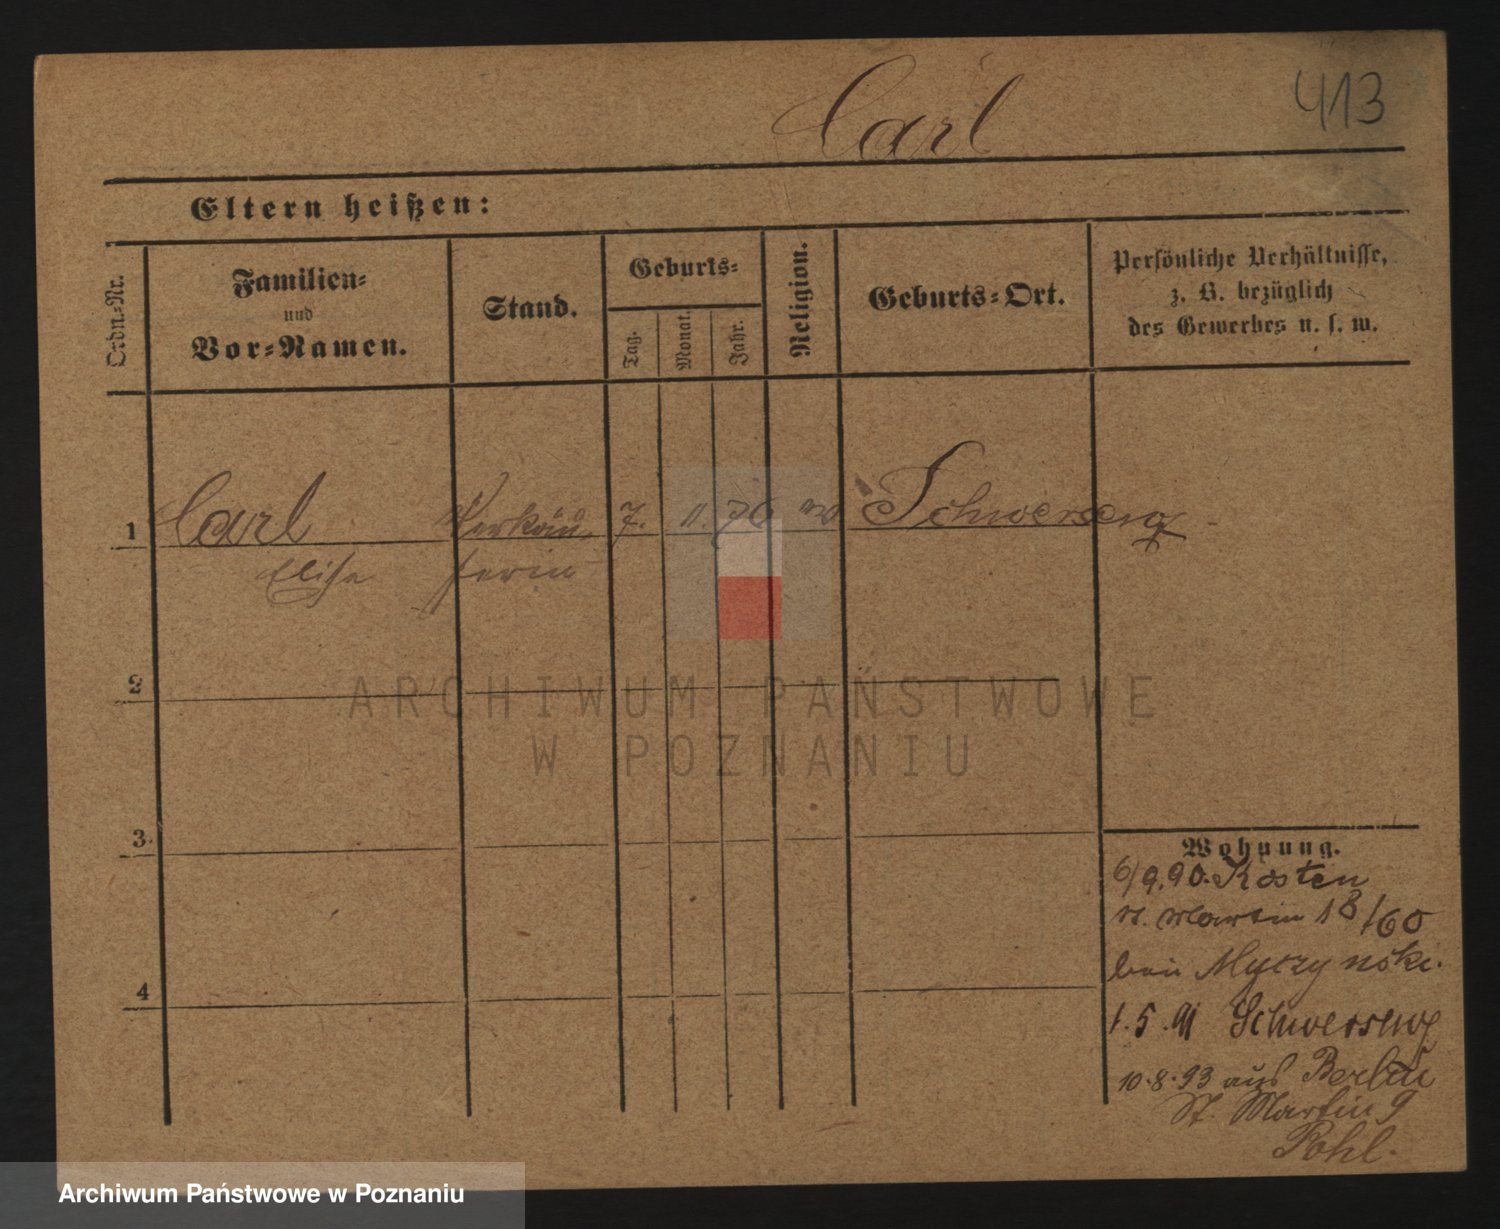 413
Carl
Eltern heißen:
Ordn.-Nr.
Familien-
und
Vor-Namen.
Stand.
Geburts-
Tag.
Monat.
Jahr.
Religion.
Geburts-Ort.
Persönliche Verhältnisse,
z. B. bezüglich
des Gewerbes u. s. w.
1 Carl Verkäu 7. 11. 76 Schwersenz
Elise ferin
2
3.
4
Wohnung.
6/9.90. Kosten
St. Martin 18/60
bei Myczynski.
1.5.91 Schwersenz
10.8.93 aus Berlin
St. Martin 9
Pohl.
ARCHIWUM PAŃSTWOWE
W POZNANIU
Archiwum Państwowe w Poznaniu